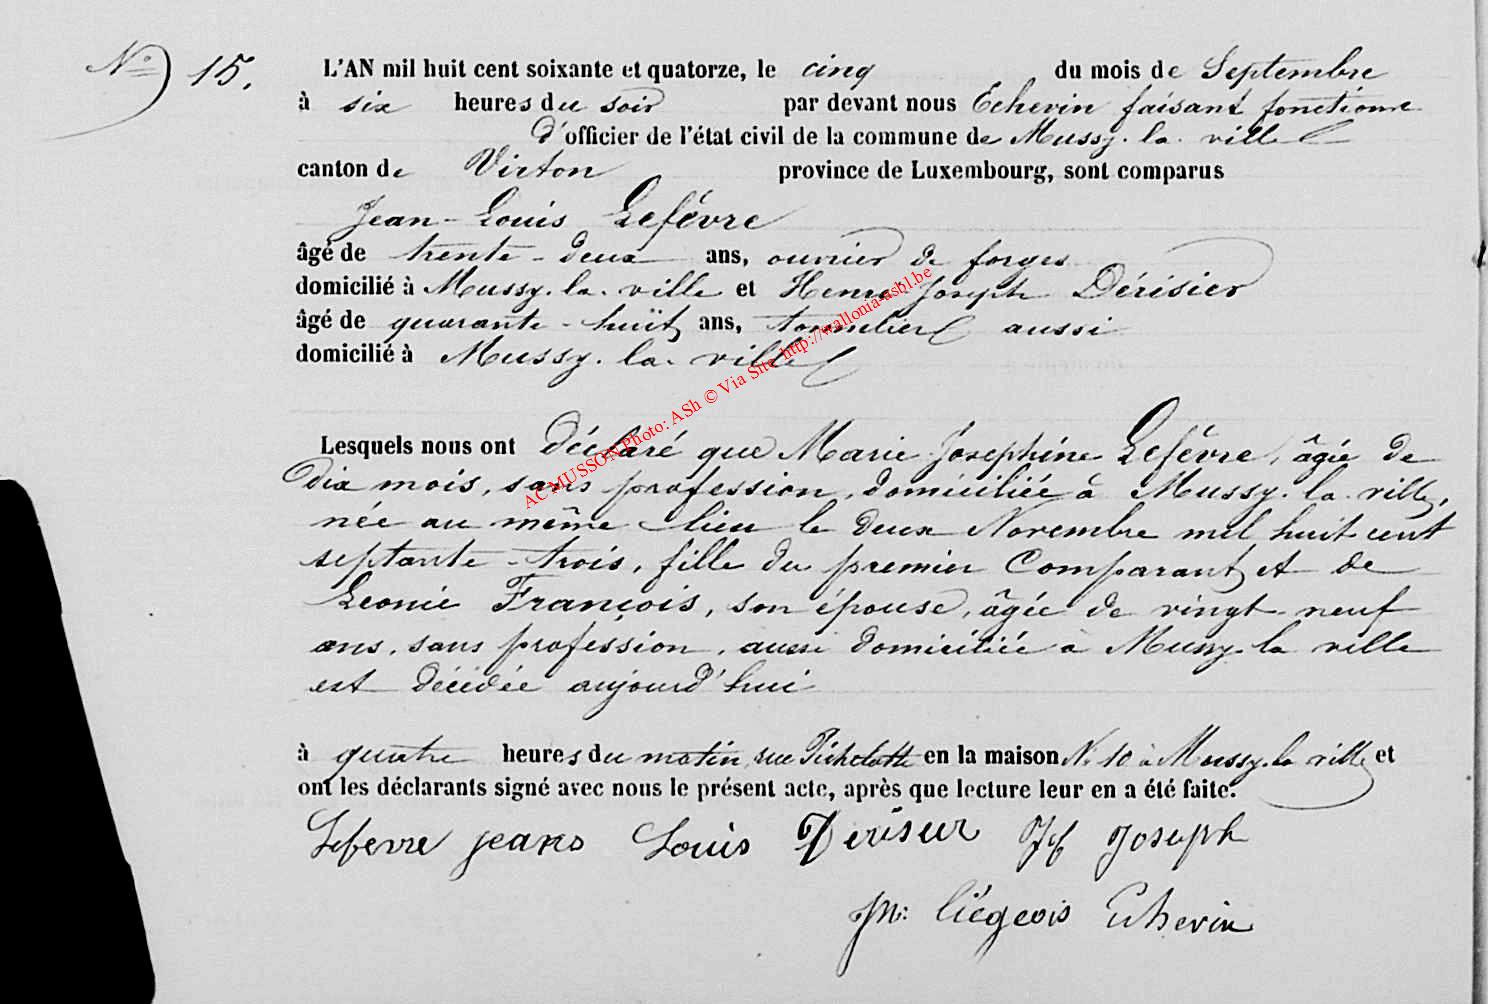 N° 15.
L'AN mil huit cent soixante et quatorze, le cinq du mois de Septembre
à six heures du soir par devant nous Echevin faisant fonctions
d'officier de l'état civil de la commune de Mussy-la-ville
canton de Virton province de Luxembourg, sont comparus
Jean-Louis Lefévre
âgé de trente-deux ans, ouvrier de forges
domicilié à Mussy-la-ville et Henri Joseph Dérisier
âgé de quarante-huit ans, tonnelier aussi
domicilié à Mussy-la-ville
Lesquels nous ont déclaré que Marie Josephine Lefévre, âgée de
dix mois, sans profession, domiciliée à Mussy-la-ville,
née au même lieu le deux Novembre mil huit cent
septante-trois, fille du premier Comparant et de
Leonie François, son épouse, âgée de vingt-neuf
ans, sans profession, aussi domiciliée à Mussy-la ville
est décédée aujourd'hui
à quatre heures du matin, rue en la maison N° 10 à Mussy-la ville et
ont les déclarants signé avec nous le présent acte, après que lecture leur en a été faite.
Lefevre jean Louis Deriseur Joseph
Liégeois Echevin
AC MUSSON Photo: ASh © Via Site http://wallonia-asbl.be